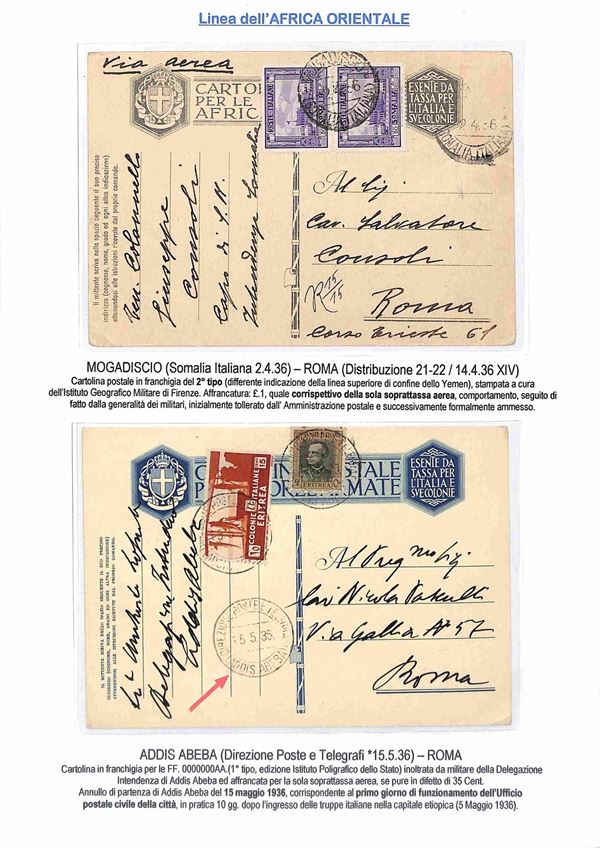 Linea dell'AFRICA ORIENTALE
Via aerea
CARTO
PER LE
AFRIC
ESENTE DA
TASSA PER
L'ITALIA
E SVE COLONIE
POSTE ITALIANE
SOMALIA
Il mittente scriva nello spazio seguente il suo preciso
indirizzo (cognome, nome, grado ed ogni altra indicazione)
attenendosi alle istruzioni ricevute dal proprio comando.
Ten. Colonnello
Giuseppe
Consoli
Capo di S. M.
Intendenza Somalia
Al Sig
Cav. Salvatore
Consoli
R 15/15
Roma
Corso Trieste 61
MOGADISCIO (Somalia Italiana 2.4.36) – ROMA (Distribuzione 21-22 / 14.4.36 XIV)
Cartolina postale in franchigia del 2° tipo (differente indicazione della linea superiore di confine dello Yemen), stampata a cura
dell'Istituto Geografico Militare di Firenze. Affrancatura: £.1, quale corrispettivo della sola soprattassa aerea, comportamento, seguito di
fatto dalla generalità dei militari, inizialmente tollerato dall' Amministrazione postale e successivamente formalmente ammesso.
POSTALE
ARMATE
ESENTE DA
TASSA PER
L'ITALIA
E SVE COLONIE
COLONIE ITALIANE
ERITREA
ERITREA
IL MITTENTE SCRIVA NELLO SPAZIO SEGUENTE IL SUO PRECISO
INDIRIZZO (COGNOME, NOME, GRADO ED OGNI ALTRA INDICAZIONE)
ATTENENDOSI ALLE ISTRUZIONI RICEVUTE DAL PROPRIO COMANDO.
Delegazione Intendenza
Addis Abeba
DIREZIONE POSTE E TELEGRAFI
15.5.36
ADDIS ABEBA
Al Preg mo Sig
Via Gallia N° 57
Roma
ADDIS ABEBA (Direzione Poste e Telegrafi *15.5.36) – ROMA
Cartolina in franchigia per le FF. 0000000AA.(1° tipo, edizione Istituto Poligrafico dello Stato) inoltrata da militare della Delegazione
Intendenza di Addis Abeba ed affrancata per la sola soprattassa aerea, se pure in difetto di 35 Cent.
Annullo di partenza di Addis Abeba del 15 maggio 1936, corrispondente al primo giorno di funzionamento dell'Ufficio
postale civile della città, in pratica 10 gg. dopo l'ingresso delle truppe italiane nella capitale etiopica (5 Maggio 1936).